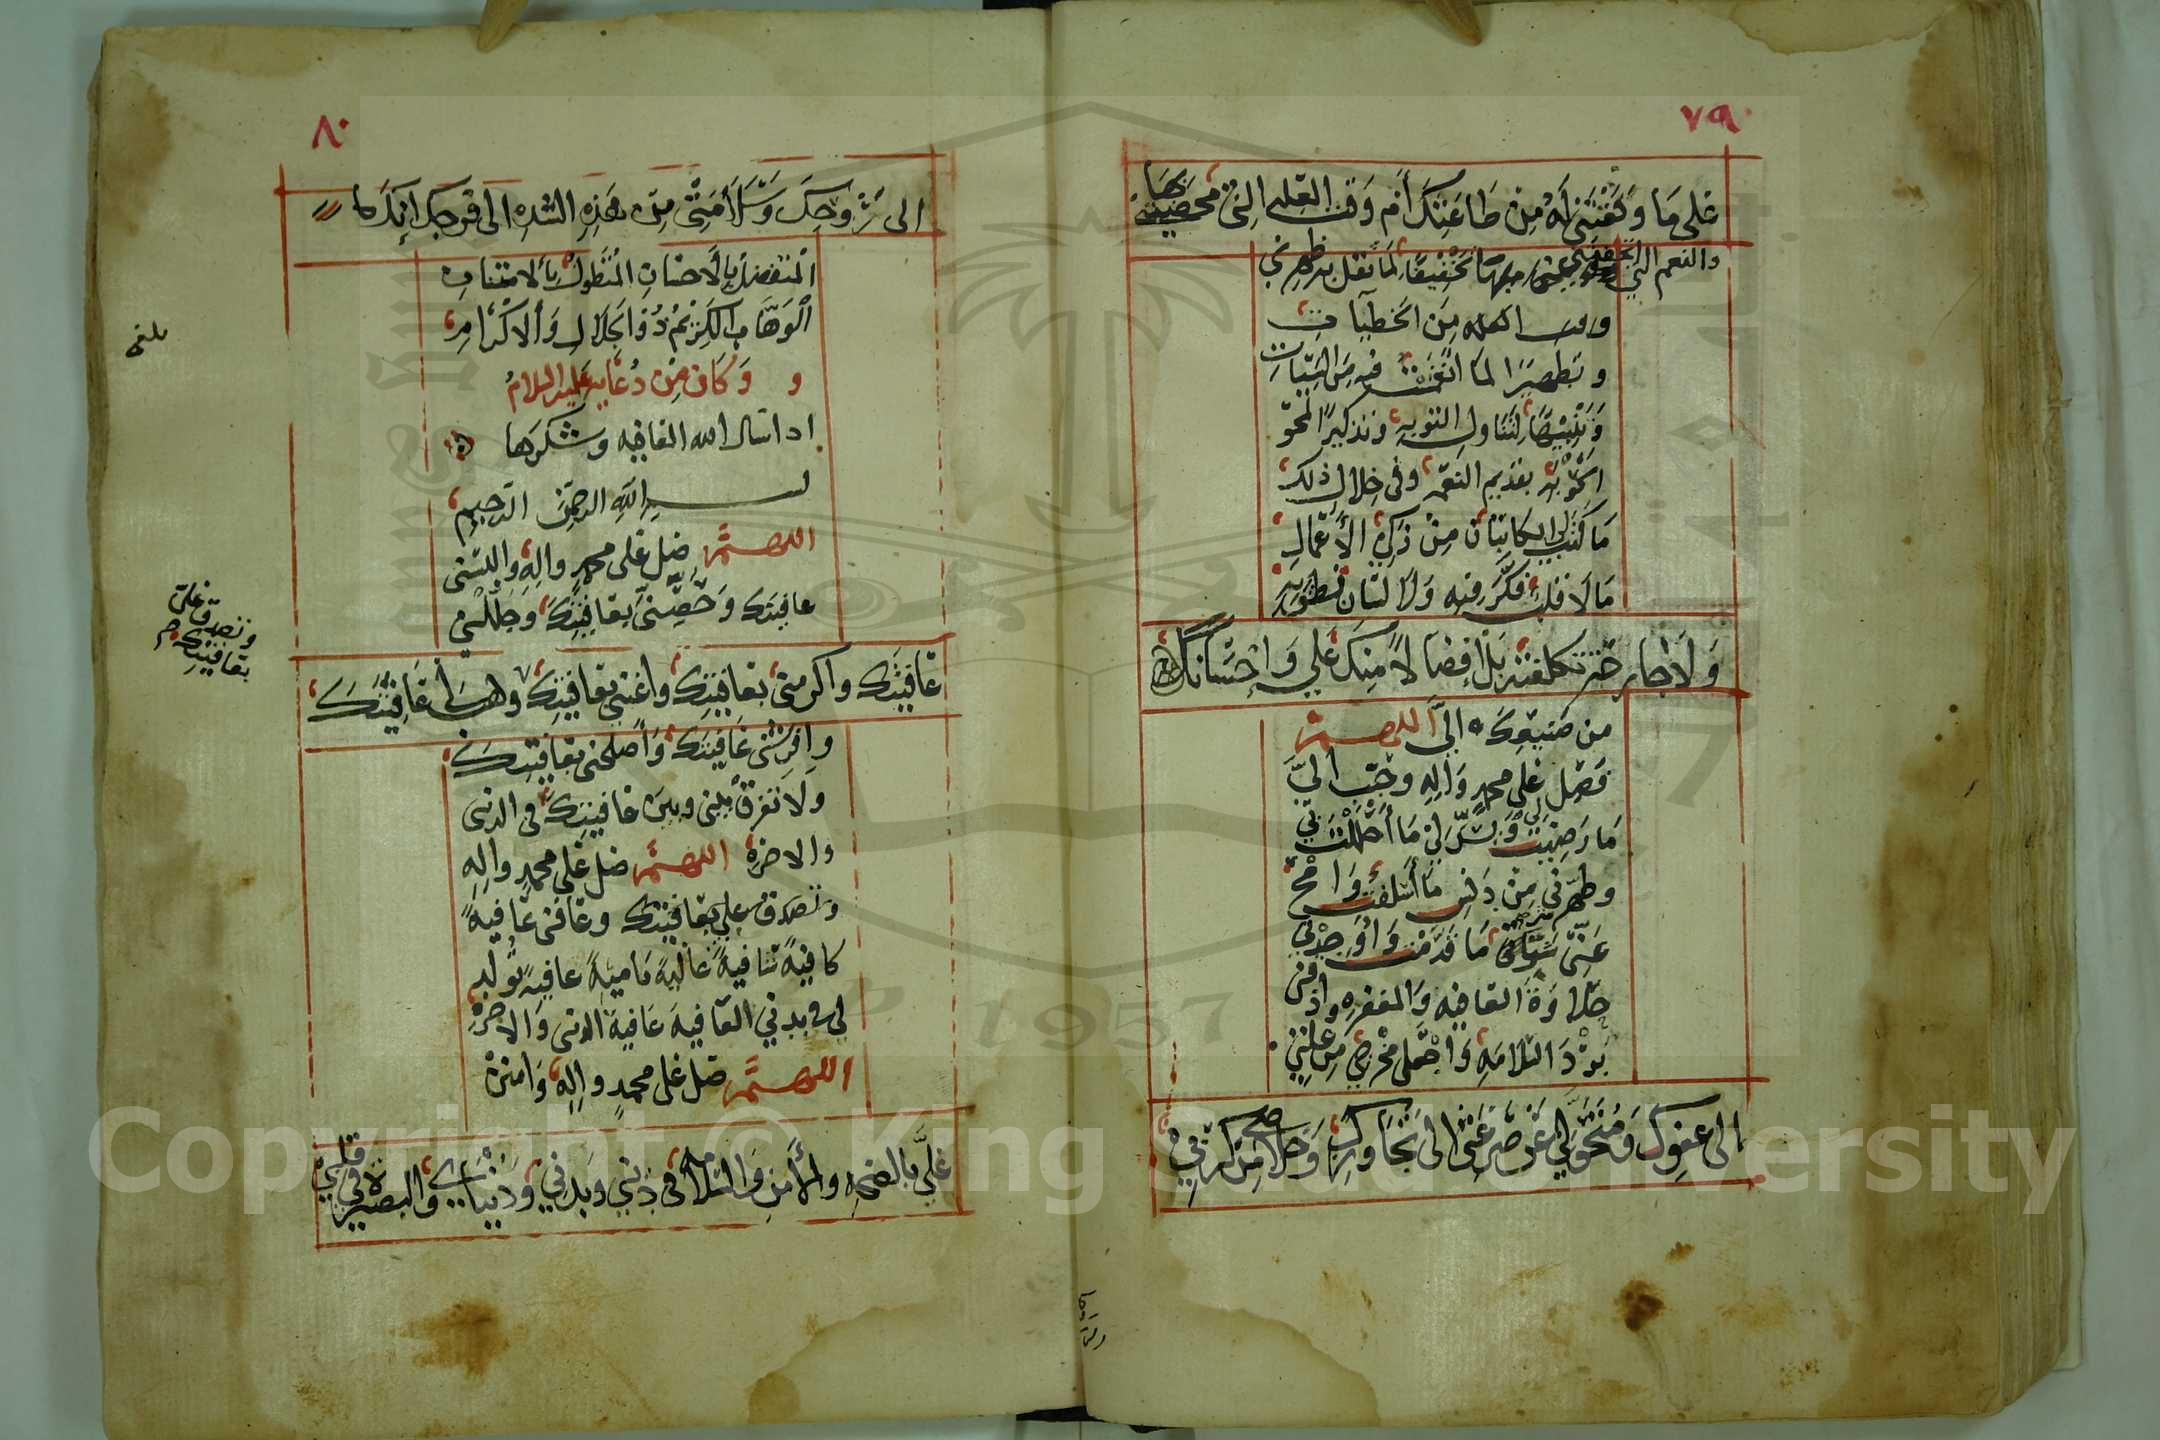 ٧٩
على ما وفقتني له من طاعتك أم وقت العلة التي محصتني بها
والنعم التي أتحفتني بها تخفيفا لما ثقل به ظهري
من الخطيات
وتطهيرا لما انغمست فيه من السيئات
وتنبيها لتناول التوبة وتذكيرا لمحو
الحوبة بقديم النعمة وفي خلال ذلك
ما كتب لي الكاتبان من زكي الأعمال
ما لا قلب فكر فيه ولا لسان نطق به
ولا جارحة تكلفته بل إفضالا منك علي وإحسانا
من صنيعك إلي اللهم
فصل على محمد وآله وحبب إلي
ما رضيت لي ويسر لي ما أحللت بي
وطهرني من دنس ما أسلفت وامح
عني شر ما قدمت وأوجدني
حلاوة العافية والمغفرة وأذقني
برد السلامة واجعل مخرجي من علتي
إلى عفوك ومتحولي عن صرعتي إلى تجاوزك وخلاصي من كربي
٨٠
إلى روحك وسلامتي من هذه الشدة إلى فرجك إنك
المتفضل بالإحسان المتطول بالامتنان
الوهاب الكريم ذو الجلال والإكرام
وكان من دعائه عليه السلام
إذا سأل الله العافية وشكرها
بسم الله الرحمن الرحيم
اللهم صل على محمد وآله وألبسني
عافيتك وحصني بعافيتك وجللني
عافيتك وأكرمني بعافيتك وأغنني بعافيتك وهب لي عافيتك
وتصدق علي
بعافيتك
وأفرشني عافيتك وأصلحني بعافيتك
ولا تفرق بيني وبين عافيتك في الدنيا
والآخرة اللهم صل على محمد وآله
وتصدق علي بعافيتك وعافني عافية
كافية شافية عالية نامية عافية تولد
لي في بدني العافية عافية الدنيا والآخرة
اللهم صل على محمد وآله وامنن
علي بالصحة والأمن والسلامة في ديني وبدني ودنياي والبصيرة في قلبي
Copyright © King Saud University
1957